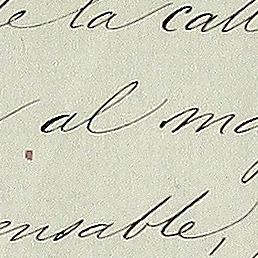 de la call
al ma
ensable,